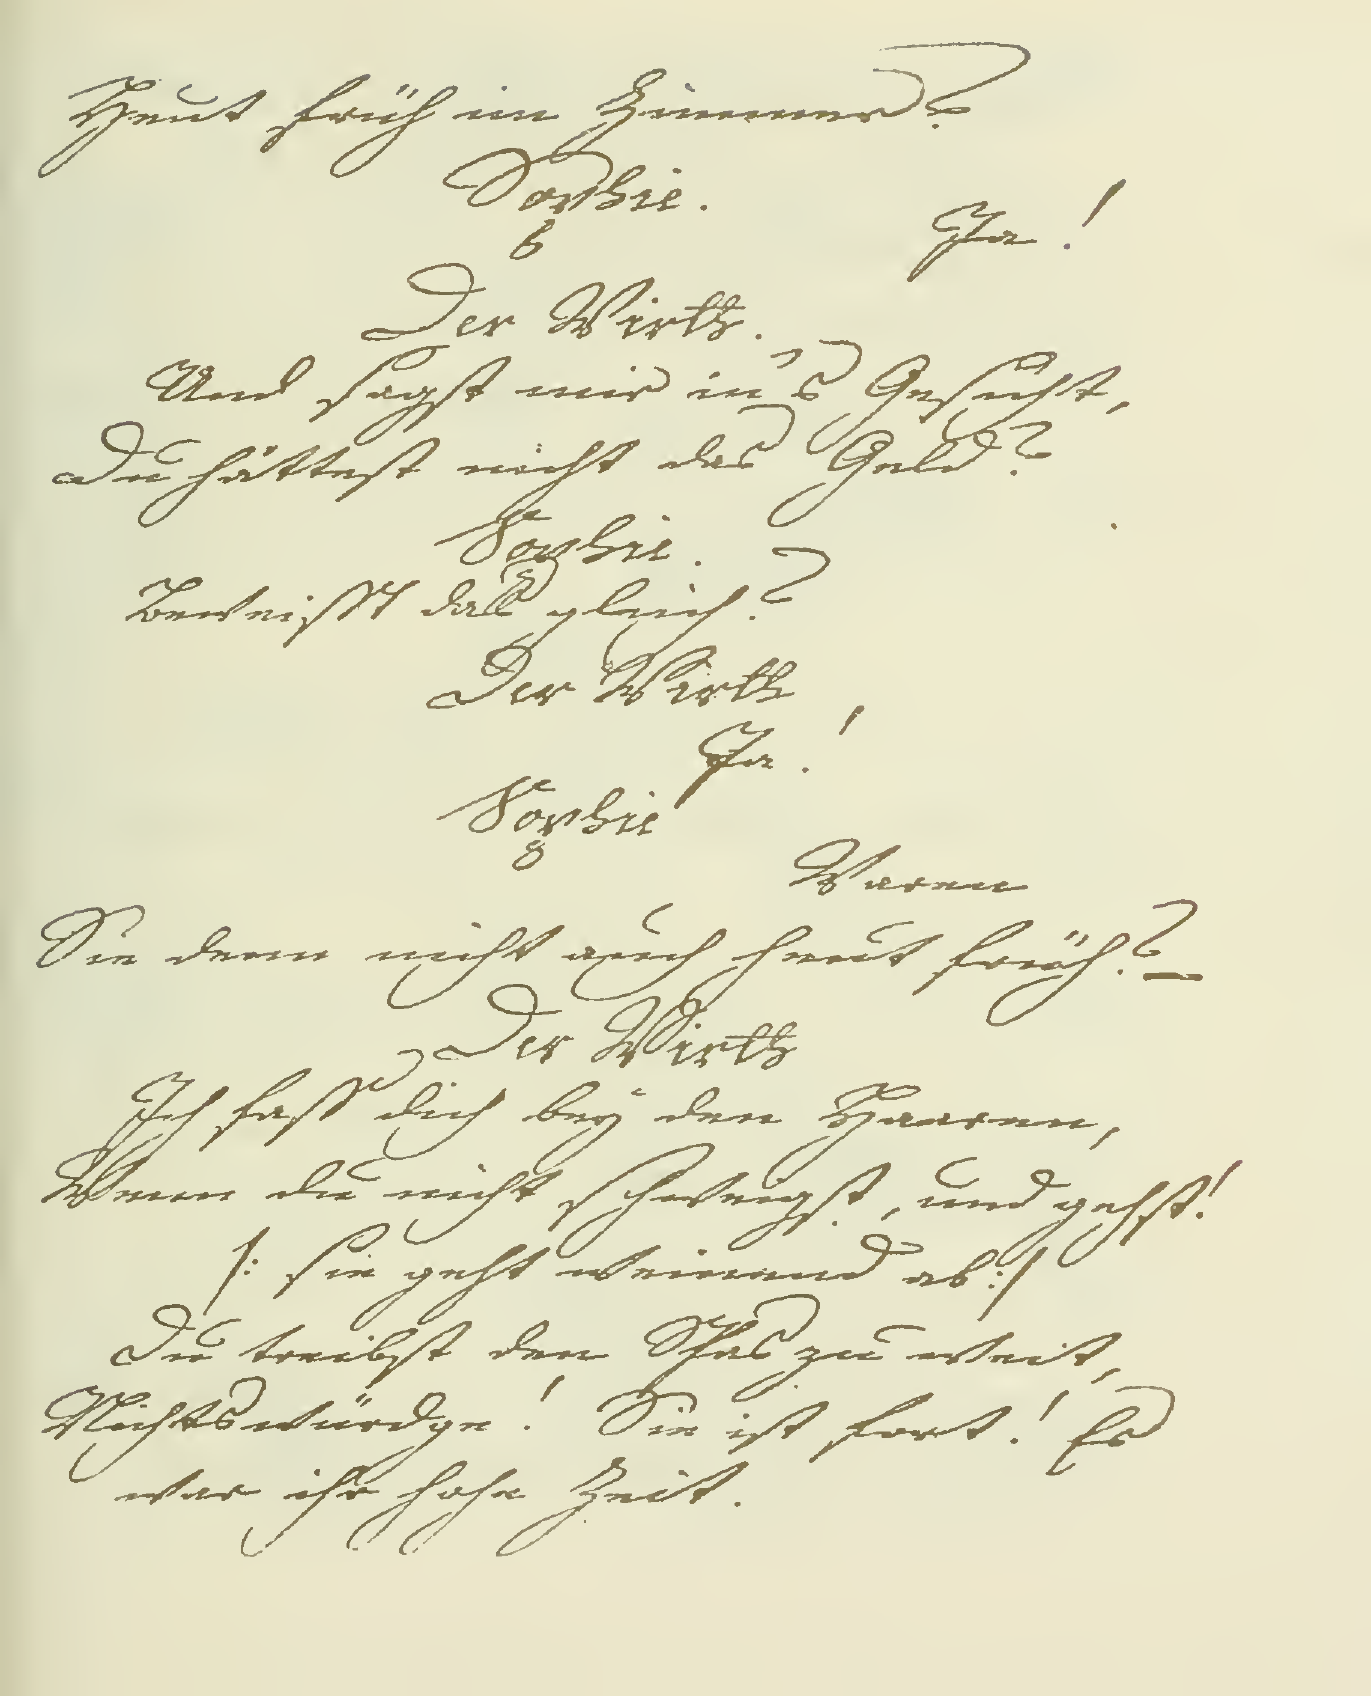 Heut früh im Zimmer?
Sophie.
Ja!
Der Wirth.
Und sagst mir in's Gesicht,
Du hättest nicht das Geld?
Sophie.
Beweisst das gleich?
Der Wirth
Ja!
Sophie
Waren
Sie denn nicht auch heut früh? –
Der Wirth
Ich fass dich bey den Haaren,
Wenn du nicht schweigst, und gehst!
/: sie geht weinend ab :/
Du treibst den Spas zu weit,
Nichtswürdge! Sie ist fort! Es
war ihr hohe Zeit.